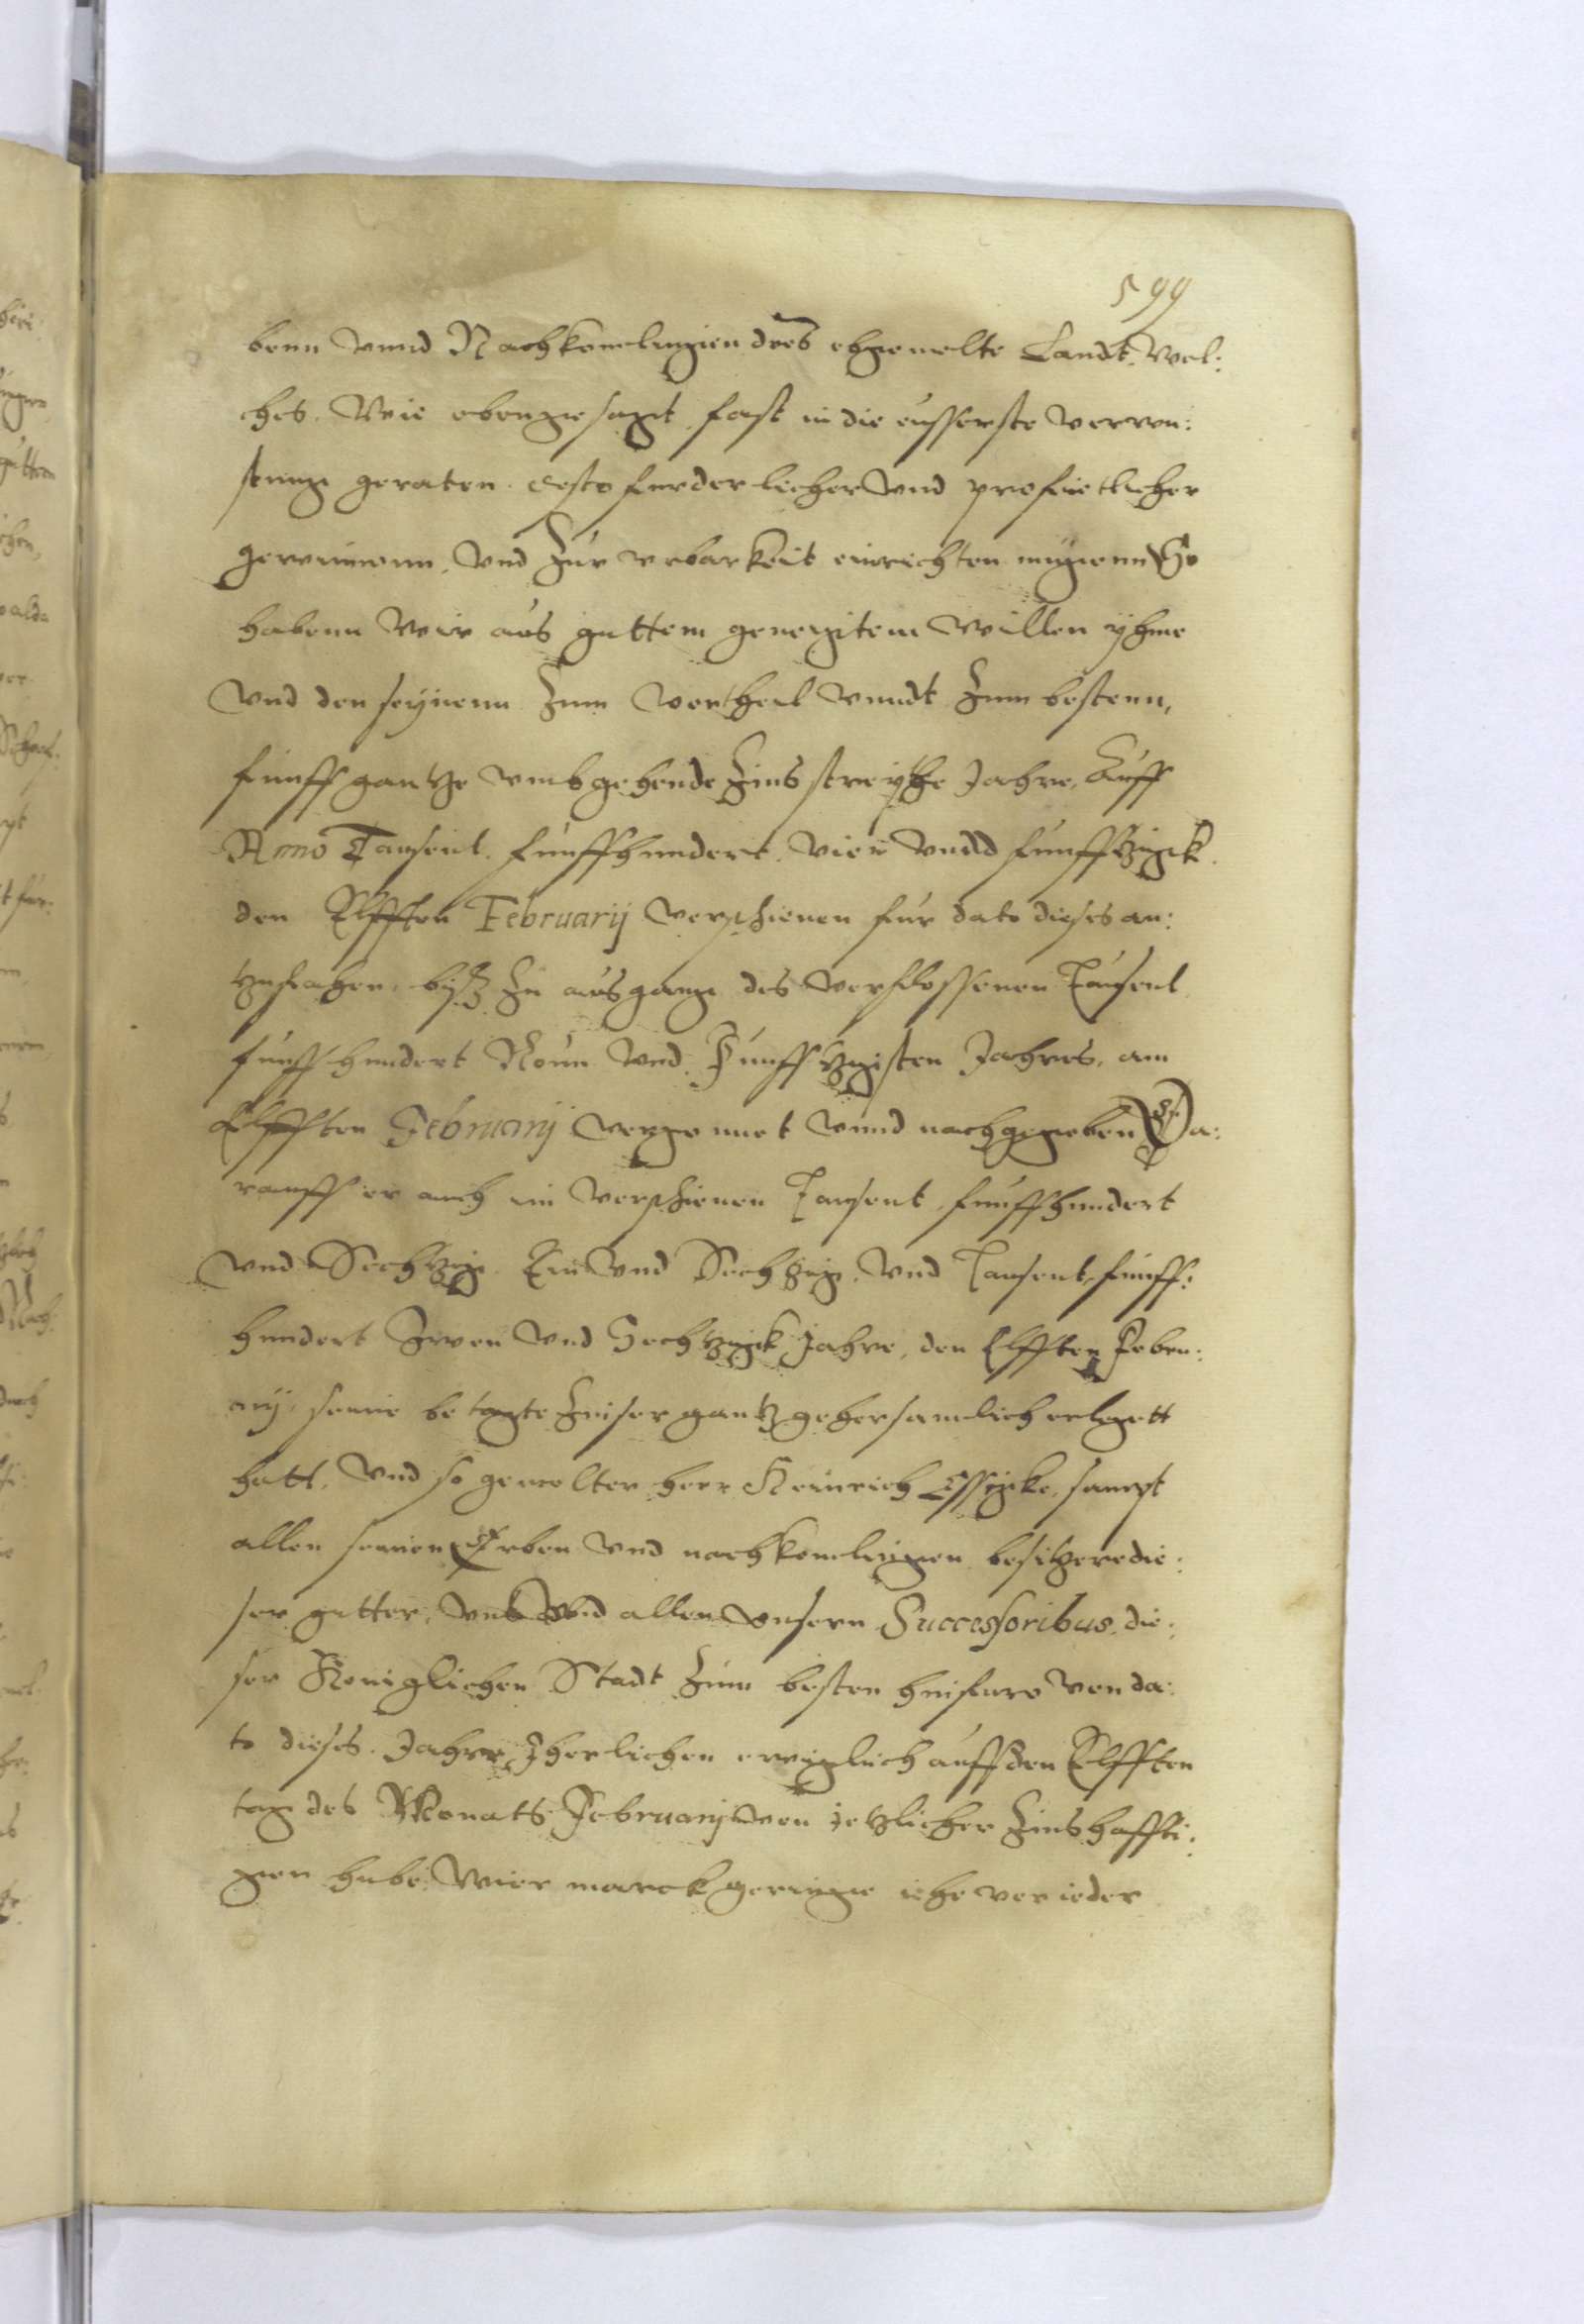 599
benn vnnd Nachkomlingien dees obgemelte Landt. Wel:
ches. Wie obengesagt fast in die eusserste verwu:
stung geraten. desto furderlicher vnd profietlicher
gewinnenn, vnd zur vrbarkeit einrichten mugenn So
habenn wir aus guttem genegitem willen yhme
vnd den seynenn zum vortheel vnndt zum bestenn,
funff gantze vmbgehende Zins freyhe Jahre, Auff
Anno Tausent. funffhundert. vier vnnd funfftzigk.
den Elfften Februarij verschienen fur dato dieses an:
tzufahen, biß zu ausgang des verflossenen Tausent
funffhundert Neun vnd Funfftzigisten Jahres, am
Elfften Februarij vergonnet vnnd nachgegeben Da:
rauff er auch im verschienen Tausent, funffhundert
vnd Sechtzig. Ein vnd Sechtzig, vnd Tausent, funff:
hundert Zwen vnd Sechtzigk Jahre, den Elfften Febru:
arij, seine betagte Zinser gantz gehorsamlich erlegett
hatt, vnd so gemelter herr Heinrich sampt
allen seinen Erben vnd nachkomlingen besitzere die:
ser gutter, vns vnd allen vnsern Successoribus, die:
ser Koniglichen Stadt zum besten hinfuro von da:
to dieses. Jahre Jherlichen ewiglich auff den Elfften
tag des Monats Februarij von jetzlicher Zinshaffti:
gen hube, vier marck geringe iehe vor ieder